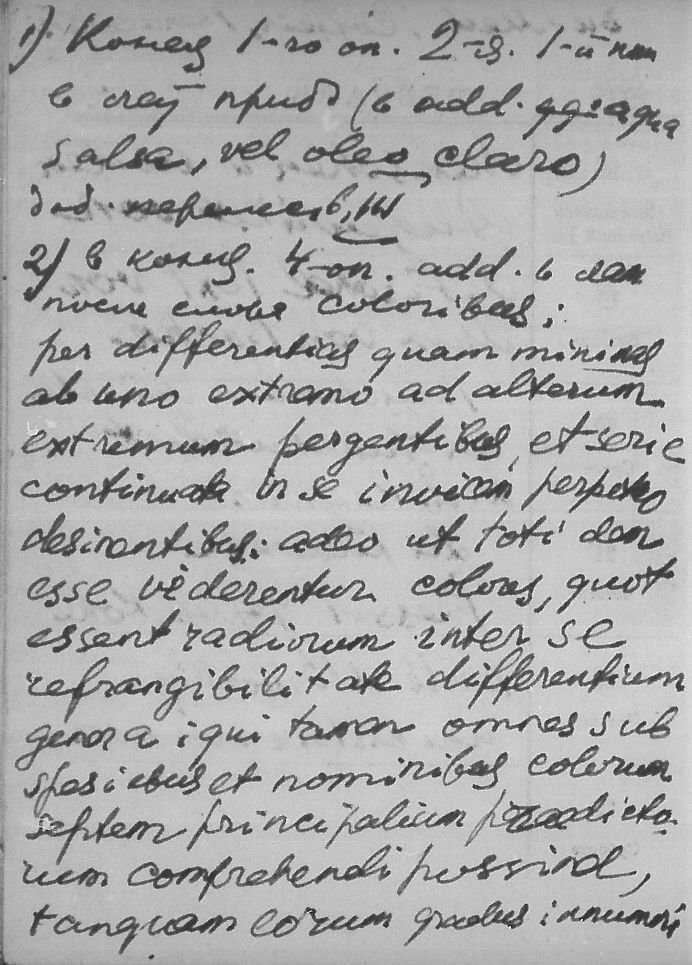 1). Конец 1-го оп. 2-я. 1-й
в приб (в add. aqua
salsa, vel oleo claro)
2) в конц. 4-оп. add. в
после слова coloribus;
per differentias quam minimas
ab uno extremo ad alterum
extremum pergentibus, et serie
continuata in se invicem perpetuo
desinentibus: adeo ut toti dem
esse viderentur colores, quot
essent radiorum inter se
refrangibilitate differentium
genera; qui tamen omnes sub
speciebus et nominibus colorum
septem principalium praedicto.
rum comprehendi possint,
tanquam eorum gradus innumeri